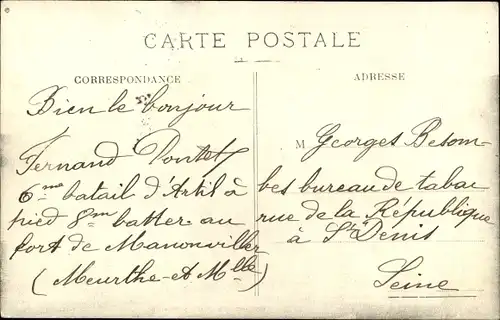 CARTE POSTALE
CORRESPONDANCE
Bien le bonjour
Fernand
6me batail d'Artil à
pied 8m batter au
fort de Manonviller
(Meurthe-et-Mlle)
ADRESSE
M Georges Besom-
bes bureau de tabac
rue de la République
à St Denis
Seine